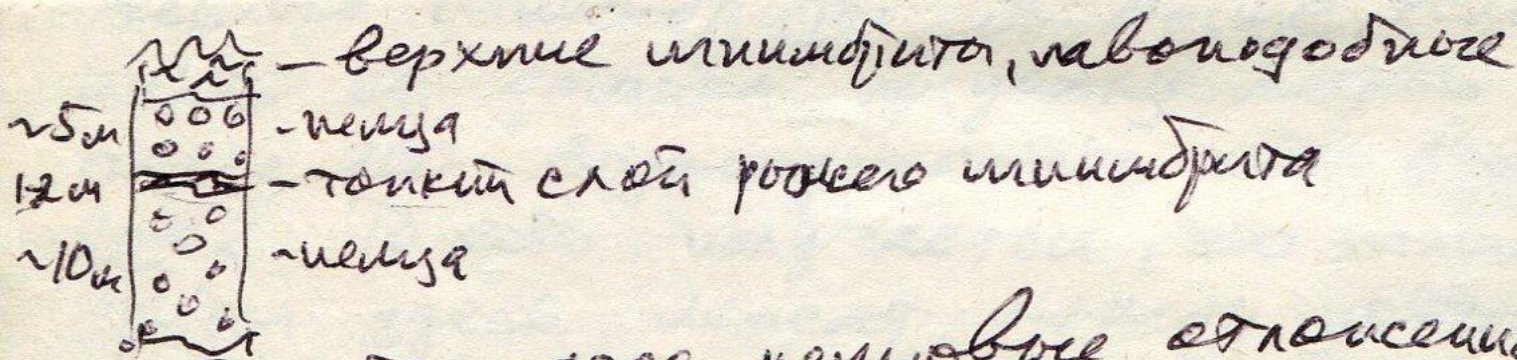 – верхние игнимбриты, лавоподобные
~5м – пемза
1-2м – тонкий слой рыжего игнимбрита
~10м – пемза
пемзовые отложения